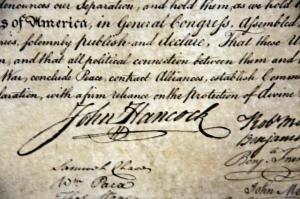 nounces our Separation, and hold them, as we hold
s of America, in General Congress, Assembled
ies, solemnly publish and declare, That these Un
n, and that all political connection between them and
War, conclude Peace, contract Alliances, establish Comme
laration, with a firm reliance on the protection of divine
John Hancock
Rob
Samuel Chase
Benjamin
Wm Paca
Benj.
Thos Stone
John Mo